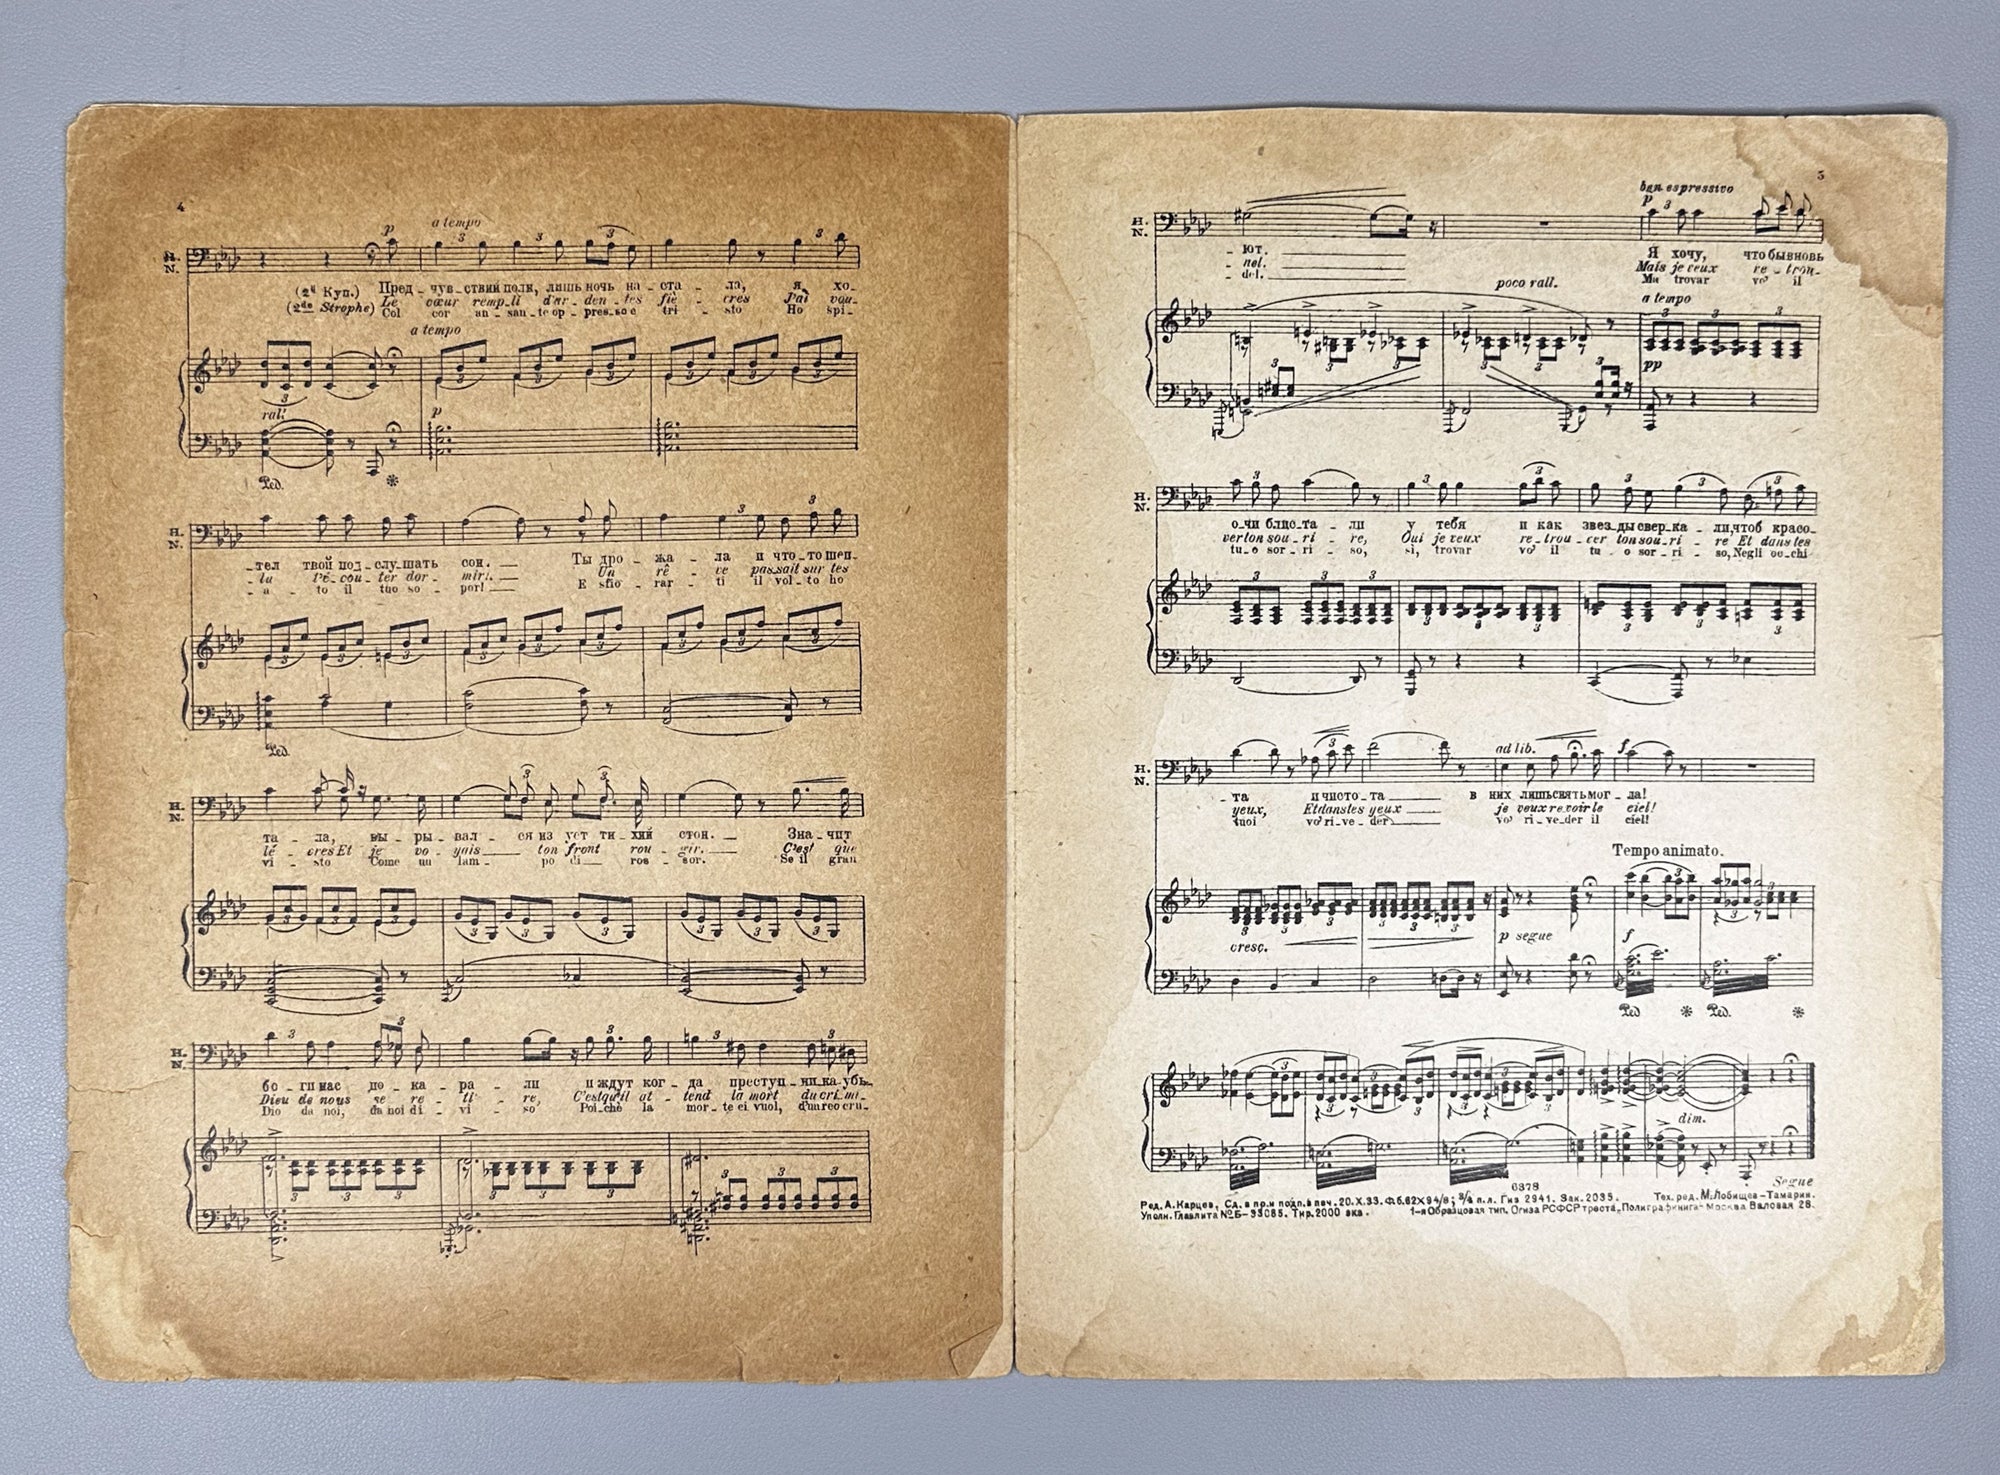 4
p
a tempo
3 3 3 3
Н.
N.
(2й Куп.) Пред - чув - ствий полн, лишь ночь на - ста - ла, я хо-
(2de Strophe) Le cœur rempli d'ar - den - tes fiè - cres J'ai vou-
Col cor an - san - te op - pres - so e tri - sto Ho spi-
a tempo
3 3 3 3 3 3 3
rall.
p
Ped. *
3 3
Н.
N.
- тел твой под - слу - шать сон. Ты дро - жа - ла и что - то шеп-
- lu t'é - cou - ter dor - mir!. Un rê - ve passait sur tes
- a - to il tuo so - por! E sfio - rar - ti il vol - to ho
3 3 3 3 3 3 3 3 3
Ped.
3 3
Н.
N.
та - ла, вы - ры - вал - ся из уст ти - хий стон. Зна - чит
lè - cres Et je vo - yais ton front rou - gir. C'est que
vi - sto Come un lam - po di ros - sor. Se il gran
3 3 3 3 3 3 3 3 3
3 3 3 3
Н.
N.
бо - ги нас по - ка - ра - ли и ждут ког - да преступ - ни - ка убь-
Dieu de nous se re - ti - re, C'est qu'il at - tend la mort du cri - mi-
Dio da noi, da noi di - vi - so Poi - chè la mor - te ei vuol, d'un reo cru-
3 3 3
5
ben espressivo
p 3
Н.
N.
- ют. Я хочу, что бы вновь
- nel. Mais je veux re - trou-
- del. Ma trovar vo' il
poco rall.
a tempo
3 3 3
3 3 3 3 3
pp
3 3 3 3 3 3
Н.
N.
о - чи блиста - ли у тебя и как звез - ды свер - ка - ли, чтоб красо-
ver ton sou - ri - re, Oui je veux re - trou - ver ton sou - ri - re Et dans tes
tu - o sor - ri - so, sì, trovar vo' il tu - o sor - ri - so, Negli oc - chi
3 3 3
3 3 3 3 3
3
ad lib.
f
Н.
N.
- та и чисто - та в них лишь сиять мог - ла!
yeux, Et dans tes yeux je veux revoir le ciel!
tuoi vo' ri - ve - der vo' ri - ve - der il ciel!
Tempo animato.
3 3
3 3 3 3 3 3
cresc.
p segue
f
Ped * Ped. *
3 3 3
3 3 3 3
dim.
6378
Segue
Ред. А. Карцев, Сд. в пр. и подп. в печ. 20.X.33. Ф. б. 62×94/8; 3/4 п.л. Гиз 2941. Зак. 2035. Тех. ред. М. Лобищев-Тамарин.
Уполн. Главлита № Б-33085. Тир. 2000 экз. 1-я Образцовая тип. Огиза РСФСР треста „Полиграфкнига" Москва Валовая 28.